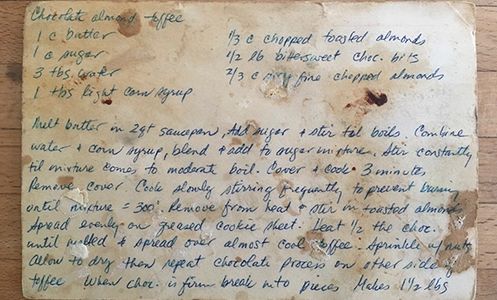 Chocolate almond toffee
1 c butter
1 c sugar
3 tbs water
1 tbs light corn syrup
1/3 c chopped toasted almonds
1/2 lb bittersweet choc. bits
2/3 c very fine chopped almonds
Melt butter in 2qt saucepan, Add sugar & stir til boils. Combine
water & corn syrup, blend & add to sugar mixture. Stir constantly
til mixture comes to moderate boil. Cover & cook 3 minutes
Remove cover. Cook slowly stirring frequently to prevent burning
until mixture = 300° Remove from heat & stir in toasted almonds
Spread evenly on greased cookie sheet. Heat 1/2 the choc.
until melted & spread over almost cool toffee. Sprinkle w/ nuts
Allow to dry then repeat chocolate process on other side of
toffee When choc. is firm break into pieces Makes 1 1/2 lbs